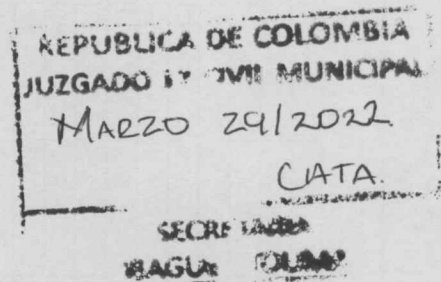 REPUBLICA DE COLOMBIA
JUZGADO CIVIL MUNICIPAL
MARZO 29/2022
CIATA.
SECRETARIA
IBAGUE TOLIMA